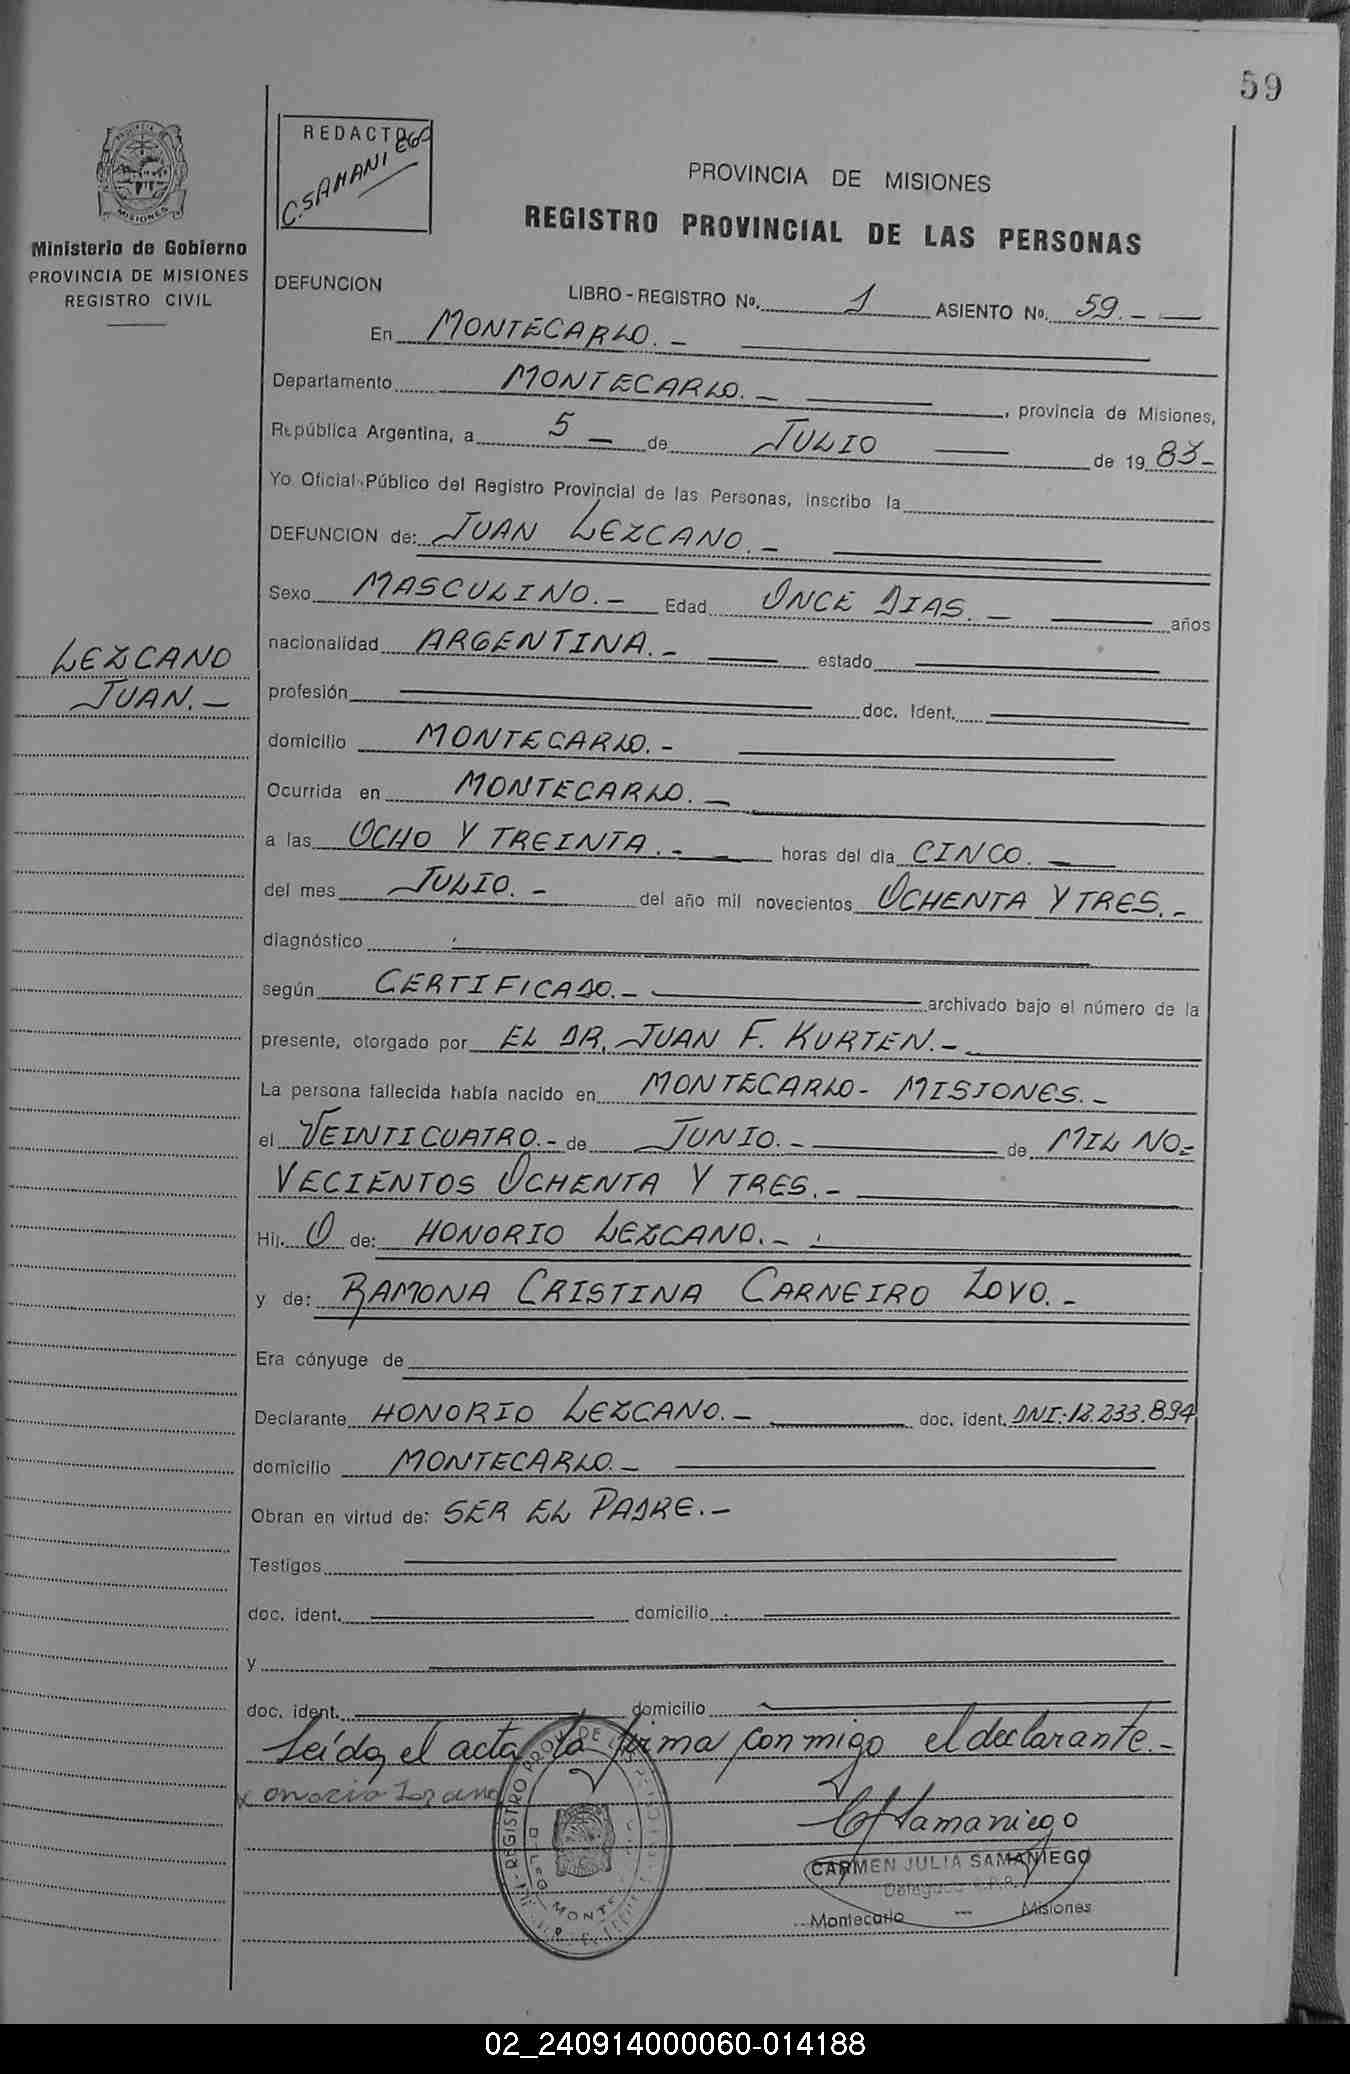 59
PROVINCIA DE
MISIONES
Ministerio de Gobierno
PROVINCIA DE MISIONES
REGISTRO CIVIL
REDACTO
C. SAMANIEGO
PROVINCIA DE MISIONES
REGISTRO PROVINCIAL DE LAS PERSONAS
DEFUNCION
LIBRO - REGISTRO Nº. 1 ASIENTO Nº. 59.-
En MONTECARLO.-
Departamento MONTECARLO.- , provincia de Misiones,
República Argentina, a 5 - de JULIO de 19 83-
Yo Oficial Público del Registro Provincial de las Personas, inscribo la
DEFUNCION de: JUAN LEZCANO.-
Sexo MASCULINO.- Edad ONCE DIAS.- años
LEZCANO
JUAN.-
nacionalidad ARGENTINA.- estado
profesión doc. Ident.
domicilio MONTECARLO.-
Ocurrida en MONTECARLO.-
a las OCHO Y TREINTA.- horas del día CINCO.-
del mes JULIO.- del año mil novecientos OCHENTA Y TRES.-
diagnóstico
según CERTIFICADO.- archivado bajo el número de la
presente, otorgado por EL DR. JUAN F. KURTEN.-
La persona fallecida había nacido en MONTECARLO- MISIONES.-
el VEINTICUATRO.- de JUNIO.- de MIL NO=
VECIENTOS OCHENTA Y TRES.-
Hij. O de: HONORIO LEZCANO.-
y de: RAMONA CRISTINA CARNEIRO LOVO.-
Era cónyuge de
Declarante HONORIO LEZCANO.- doc. ident. DNI:-12.233.894
domicilio MONTECARLO.-
Obran en virtud de: SER EL PADRE.-
Testigos
doc. ident. domicilio
y
doc. ident. domicilio
Leída el acta la firma conmigo el declarante.-
x
CJSamaniego
REGISTRO PROV. DE
MONTE
CARMEN JULIA SAMANIEGO
Montecarlo - Misiones
02_240914000060-014188